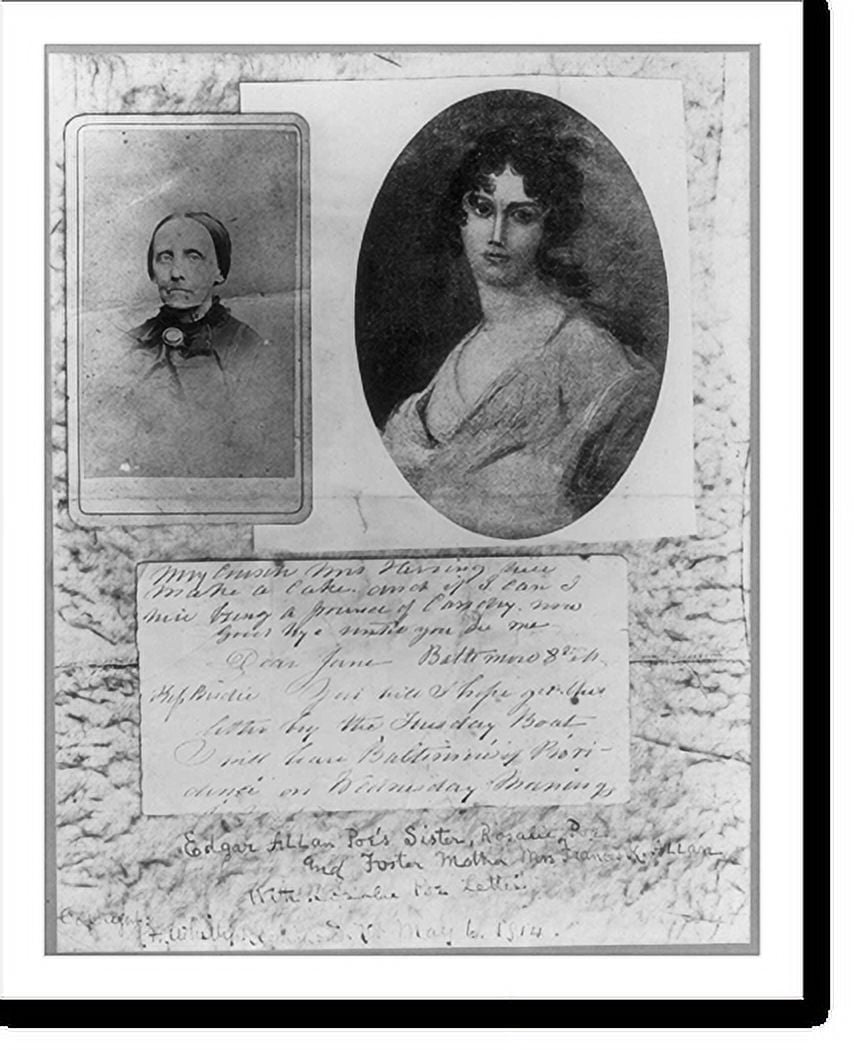 My Cousin Mrs Herring will
make a Cake. and if I Can I
will bring a pound of Candy. now
good bye until you see me
Dear Jane Baltimore 8th
You will I hope get this
letter by the Tuesday Boat
I will leave Baltimore if Provi-
dence on Wednesday Morning
Edgar Allan Poe's Sister, Rosalie Poe
and Foster Mother Mrs Frances K. Allan
With Rosalie Poe Letter.
May 6. 1914.